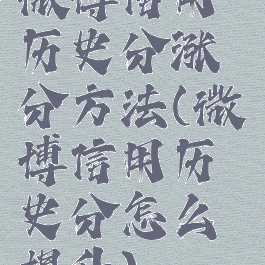 微博信用
历史分涨
分方法(微
博信用历
史分怎么
提升)